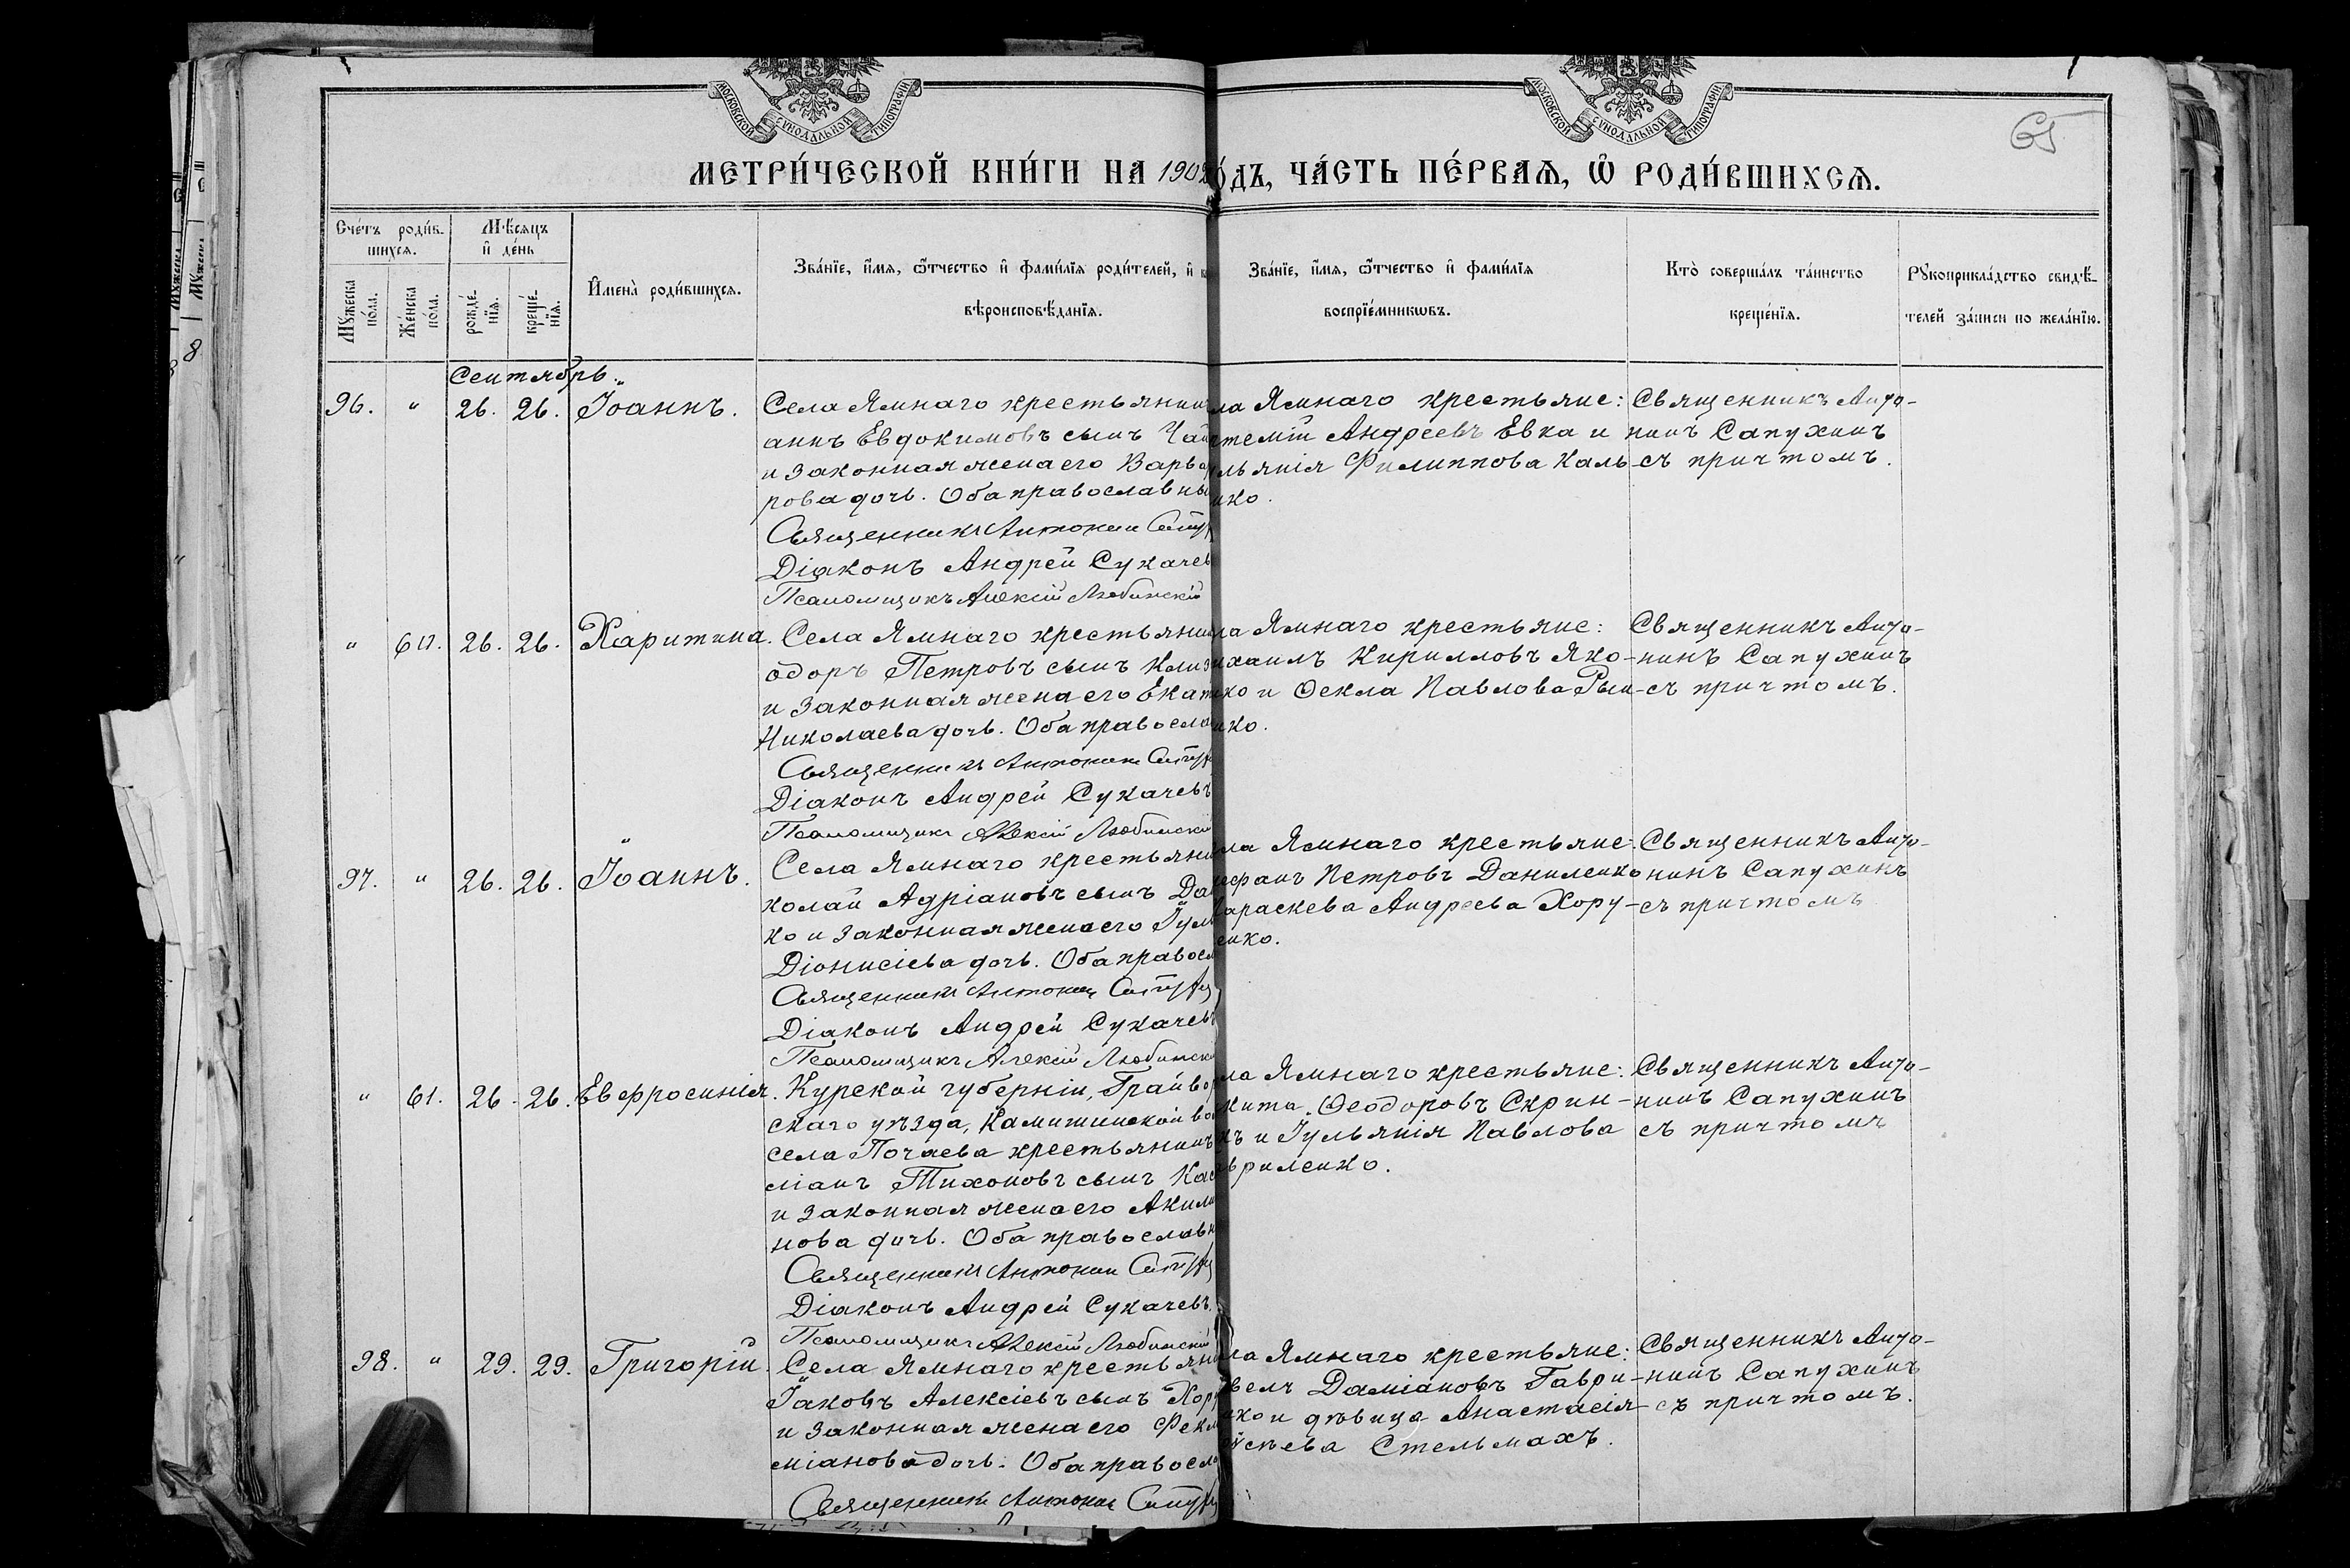 МОСКОВСКОЙ СѴНОДАЛЬНОЙ ТИПОГРАФІИ
МОСКОВСКОЙ СѴНОДАЛЬНОЙ ТИПОГРАФІИ
65
МЕТРИ́ЧЕСКОЙ КНИ́ГИ НА 190 ЧА́СТЬ ПЕ́РВАѦ, Ѡ҆ РОДИ́ВШИХСѦ.
Сче́тъ роди́в-
шихсѧ.
Мѣ́сѧцъ
и҆ де́нь
Мꙋ́жеска
по́ла.
Же́нска
по́ла.
рожде́-
нїѧ.
креще́-
нїѧ.
И҆мена̀ роди́вшихсѧ.
Зва́нїе, и҆́мѧ, ѻ҆́тчество и҆ фами́лїѧ роди́телей, и҆
вѣроисповѣ́данїѧ.
Зва́нїе, и҆́мѧ, ѻ҆́тчество и҆ фами́лїѧ
воспрїе́мникѡвъ.
Кто̀ соверша́лъ та́инство
креще́нїѧ.
Рꙋкоприкла́дство свидѣ́-
телей за́писи по жела́нїю.
Сентябрь.
96. " 26. 26. Іоаннъ.
Села Ямнаго крестьянин
аннъ Евдокимовъ сынъ
и законная жена его Варва
рова дочь. Оба православны
Священникъ Антонин
Діаконъ Андрей Сукачев
Псаломщикъ Алексій Любинскій
ла Ямнаго крестьяне:
темій Андреевъ Евка и
льянія Филиппова Каль-
нко.
Священникъ Анто-
нинъ Сапухинъ
съ причтомъ.
" 60. 26. 26. Харитина.
Села Ямнаго крестьянин
одоръ Петровъ сынъ
и законная жена его Екат
Николаева дочь. Оба правосла
Священникъ Антонин
Діаконъ Андрей Сукачевъ
Псаломщикъ Алексій Любинскій
ла Ямнаго крестьяне:
ихаилъ Кирилловъ Яко-
ко и Ѳекла Павлова
нко.
Священникъ Анто-
нинъ Сапухинъ
съ причтомъ.
97. " 26. 26. Іоаннъ.
Села Ямнаго крестьяни
колай Адріановъ сынъ
ко и законная жена его Іул
Діонисіева дочь. Оба правосл
Священникъ Антонин
Діаконъ Андрей Сукачевъ
Псаломщикъ Алексій Любински
ла Ямнаго крестьяне:
ефанъ Петровъ Даниленко
араскева Андреева Хору-
енко.
Священникъ Анто-
нинъ Сапухинъ
съ причтомъ
" 61. 26. 26. Евфросинія.
Курской губерніи, Грайвор
скаго уѣзда, Камышинской во
села Почаева крестьянинъ
міанъ Тихоновъ сынъ
и законная жена его Акили
нова дочь. Оба православн
Священникъ Антонин
Діаконъ Андрей Сукачевъ.
Псаломщикъ Алексій Любинскій
ла Ямнаго крестьяне:
кита Ѳеодоровъ Скрин-
къ и Іульянія Павлова
вриленко.
Священникъ Анто-
нинъ Сапухинъ
съ причтомъ
98. " 29. 29. Григорій.
Села Ямнаго крестьяни
Іаковъ Алексіевъ сынъ Хору
и законная жена его Фекл
міанова дочь. Оба правосла
Священникъ Антонин
ла Ямнаго крестьяне:
велъ Даміановъ Гаври-
нко и дѣвица Анастасія
Стельмахъ.
Священникъ Анто-
нинъ Сапухинъ
съ причтомъ.